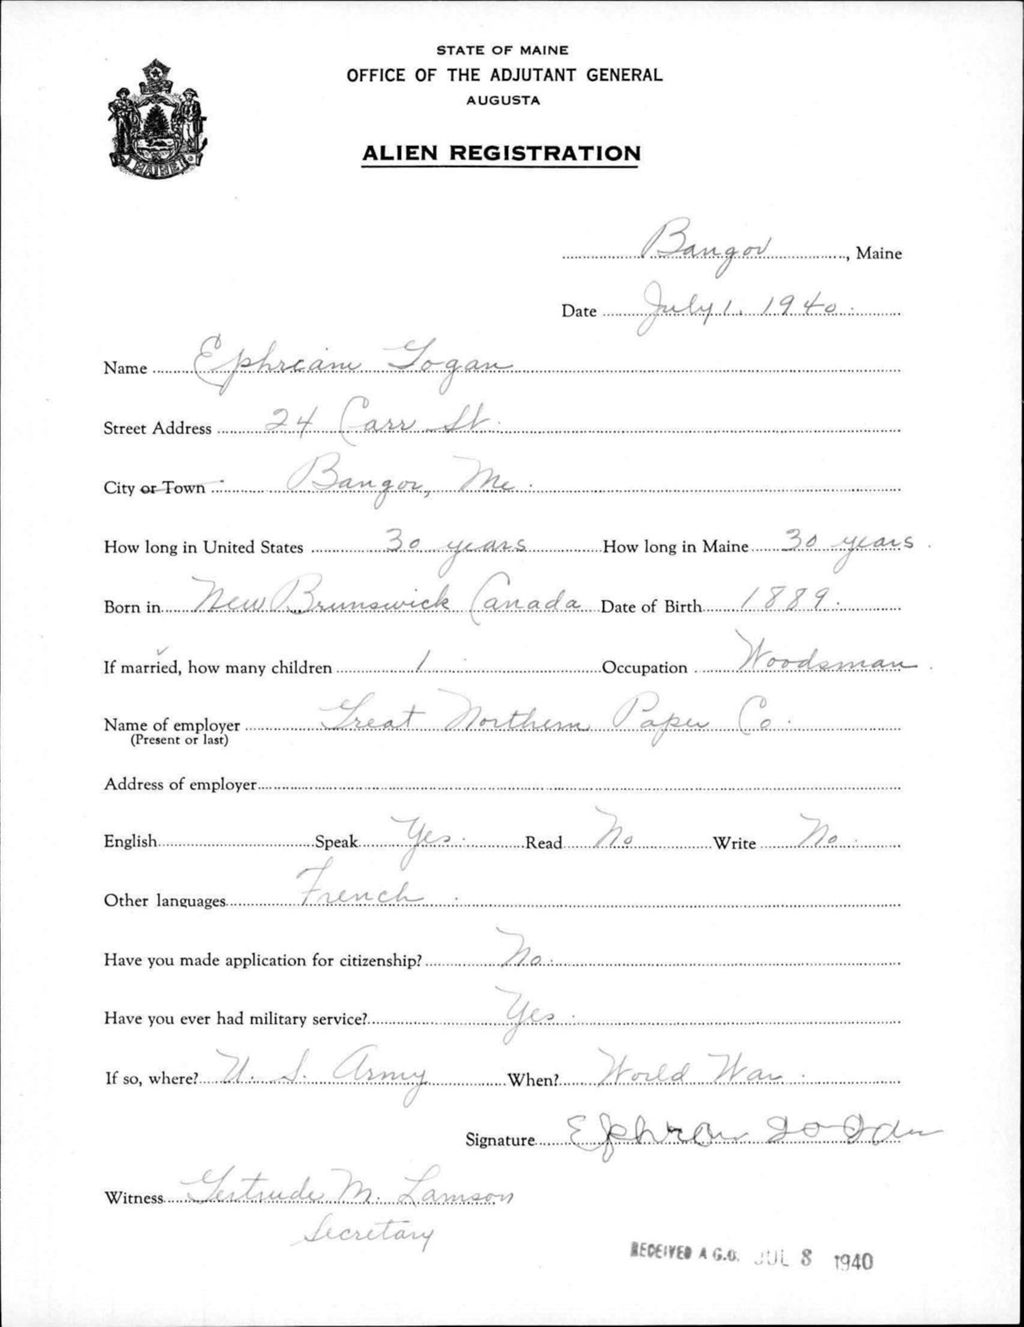 STATE OF MAINE
OFFICE OF THE ADJUTANT GENERAL
AUGUSTA
MAINE
ALIEN REGISTRATION
Bangor, Maine
Date July 1, 1940.
Name Ephream Gogan
Street Address 24 Carr St.
City or Town Bangor, Me.
How long in United States 30 years How long in Maine 30 years.
Born in New Brunswick Canada Date of Birth 1889.
If married, how many children 1 Occupation Woodsman.
Name of employer Great Northern Paper Co.
(Present or last)
Address of employer
English Speak Yes. Read No Write No.
Other languages French.
Have you made application for citizenship? No.
Have you ever had military service? Yes.
If so, where? U. S. Army When? World War.
Signature
Witness Gertrude M. Lamson
Secretary
RECEIVED A.G.O. JUL 8 1940